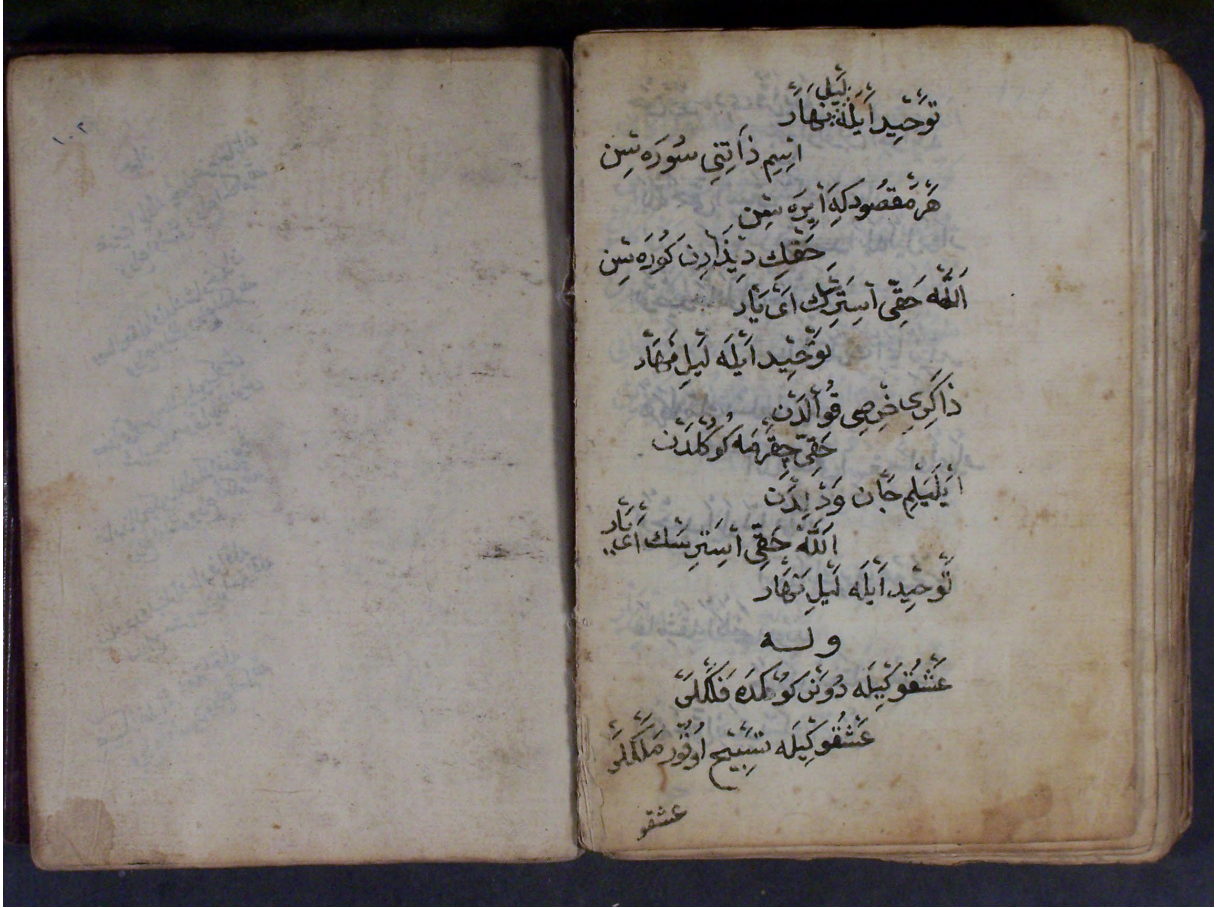 ١٠٢
تَوْحِيد اَيْلَهْ لَيْلِ نَهَارْ
اسِمِ ذَاتِنِي سُورَه سِنْ
هَرْ مَقْصُودكَه اَيرَه سِنْ
حَقِّكْ دِيذَارِنْ كُورَه سِنْ
اَللّٰه حَقِّي اسْتَرسَكْ اَيْ يَارْ
تَوْحِيد اَيْلَه لَيْلِ نَهَارْ
ذَاكِرِي حِرْصِي قُوالدَنْ
حَقِّي چِقَرْمَه كُوكُلْدَنْ
اَيْلَيَلِمْ جَان وَدِلْدَنْ
اَللّٰهْ حَقِّي اسْتَرسَكْ اَيْ يَارْ
تَوْحِيد اَيْلَه لَيْلِ نَهَارْ
وله
عَشْقُوكِيلَه دُونَنْ كُوكْدَه فَلَكْلَرْ
عَشْقُوكِيلَه تَسْبِيحْ اوُقُورْ مَلَكْلَرْ
عشقو